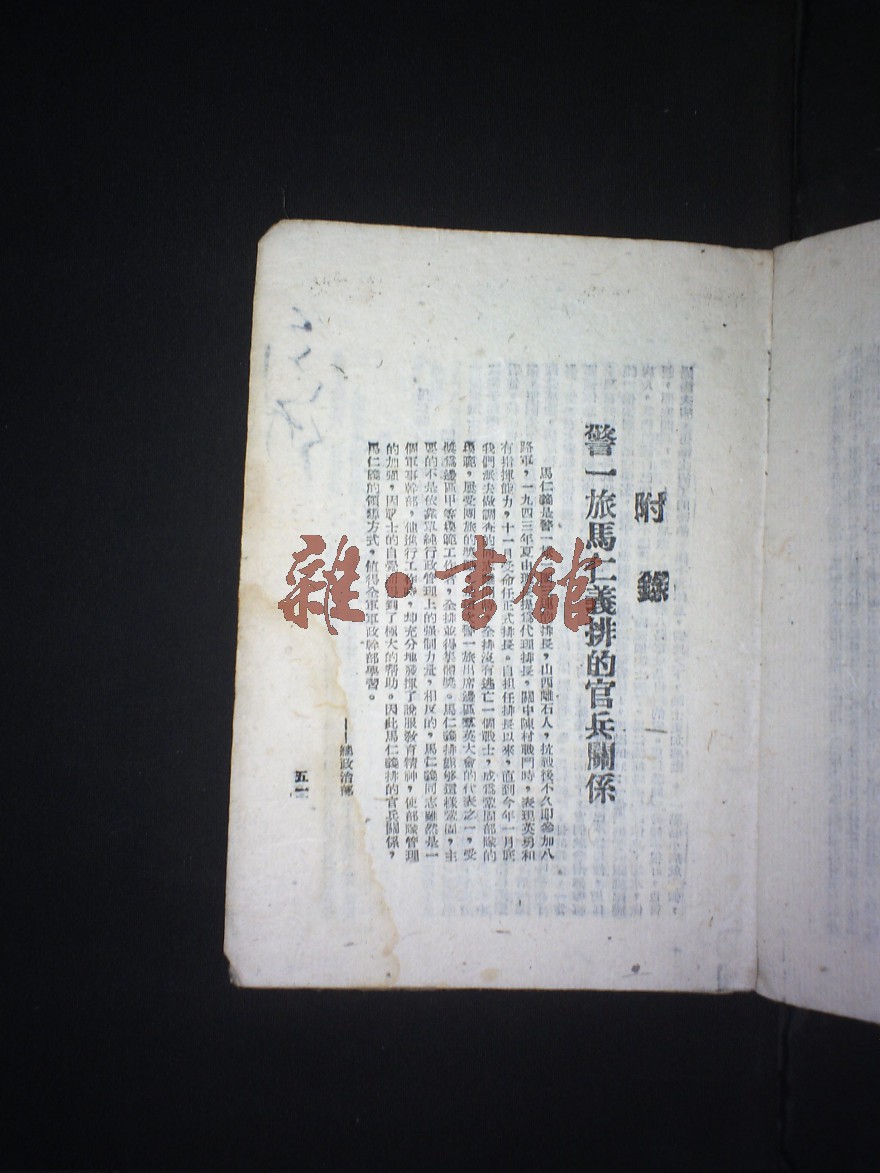 附錄
警一旅馬仁義排的官兵關係
馬仁義是警一排長，山西離石人，抗戰後不久卽參加八
路軍，一九四三年夏由提爲代理排長，關中陳村戰鬥時，表現英勇和
有指揮能力，十一月受命任正式排長。自担任排長以來，直到今年一月底
我們派人去做調查的全排沒有逃亡一個戰士，成爲鞏固部隊的
模範，屢受團旅的警一旅出席邊區羣英大會的代表之一，受
獎爲邊區甲等模範工作者，全排並得集體獎。馬仁義排能够這樣鞏固，主
要的不是依靠單純行政管理上的强制力量，相反的，馬仁義同志雖然是一
個軍事幹部，他進行工作時，却充分地發揮了說服敎育精神，使部隊管理
的加强，因戰士的自覺得到了極大的帮助。因此馬仁義排的官兵關係，
馬仁義的領導方式，值得全軍軍政幹部學習。
——總政治部
五一
雜·書館